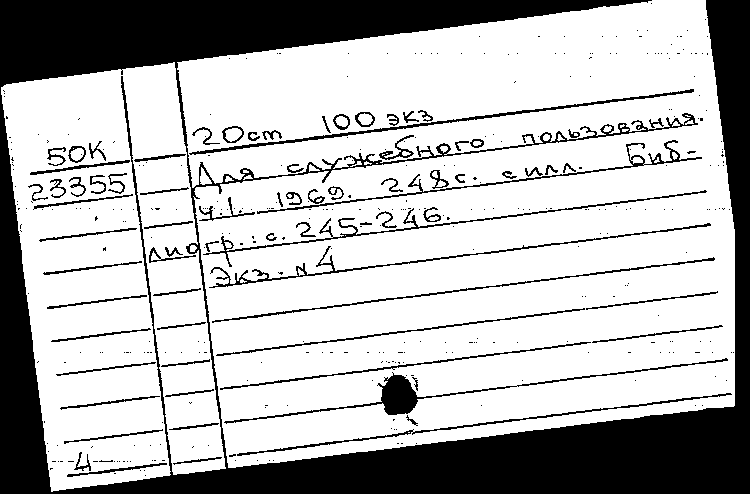 20см 100 экз
50К
Для служебного пользования.
23355
Ч.1. 1969. 248с. с илл. Биб-
лиогр.: с. 245-246.
Экз. № 4
4